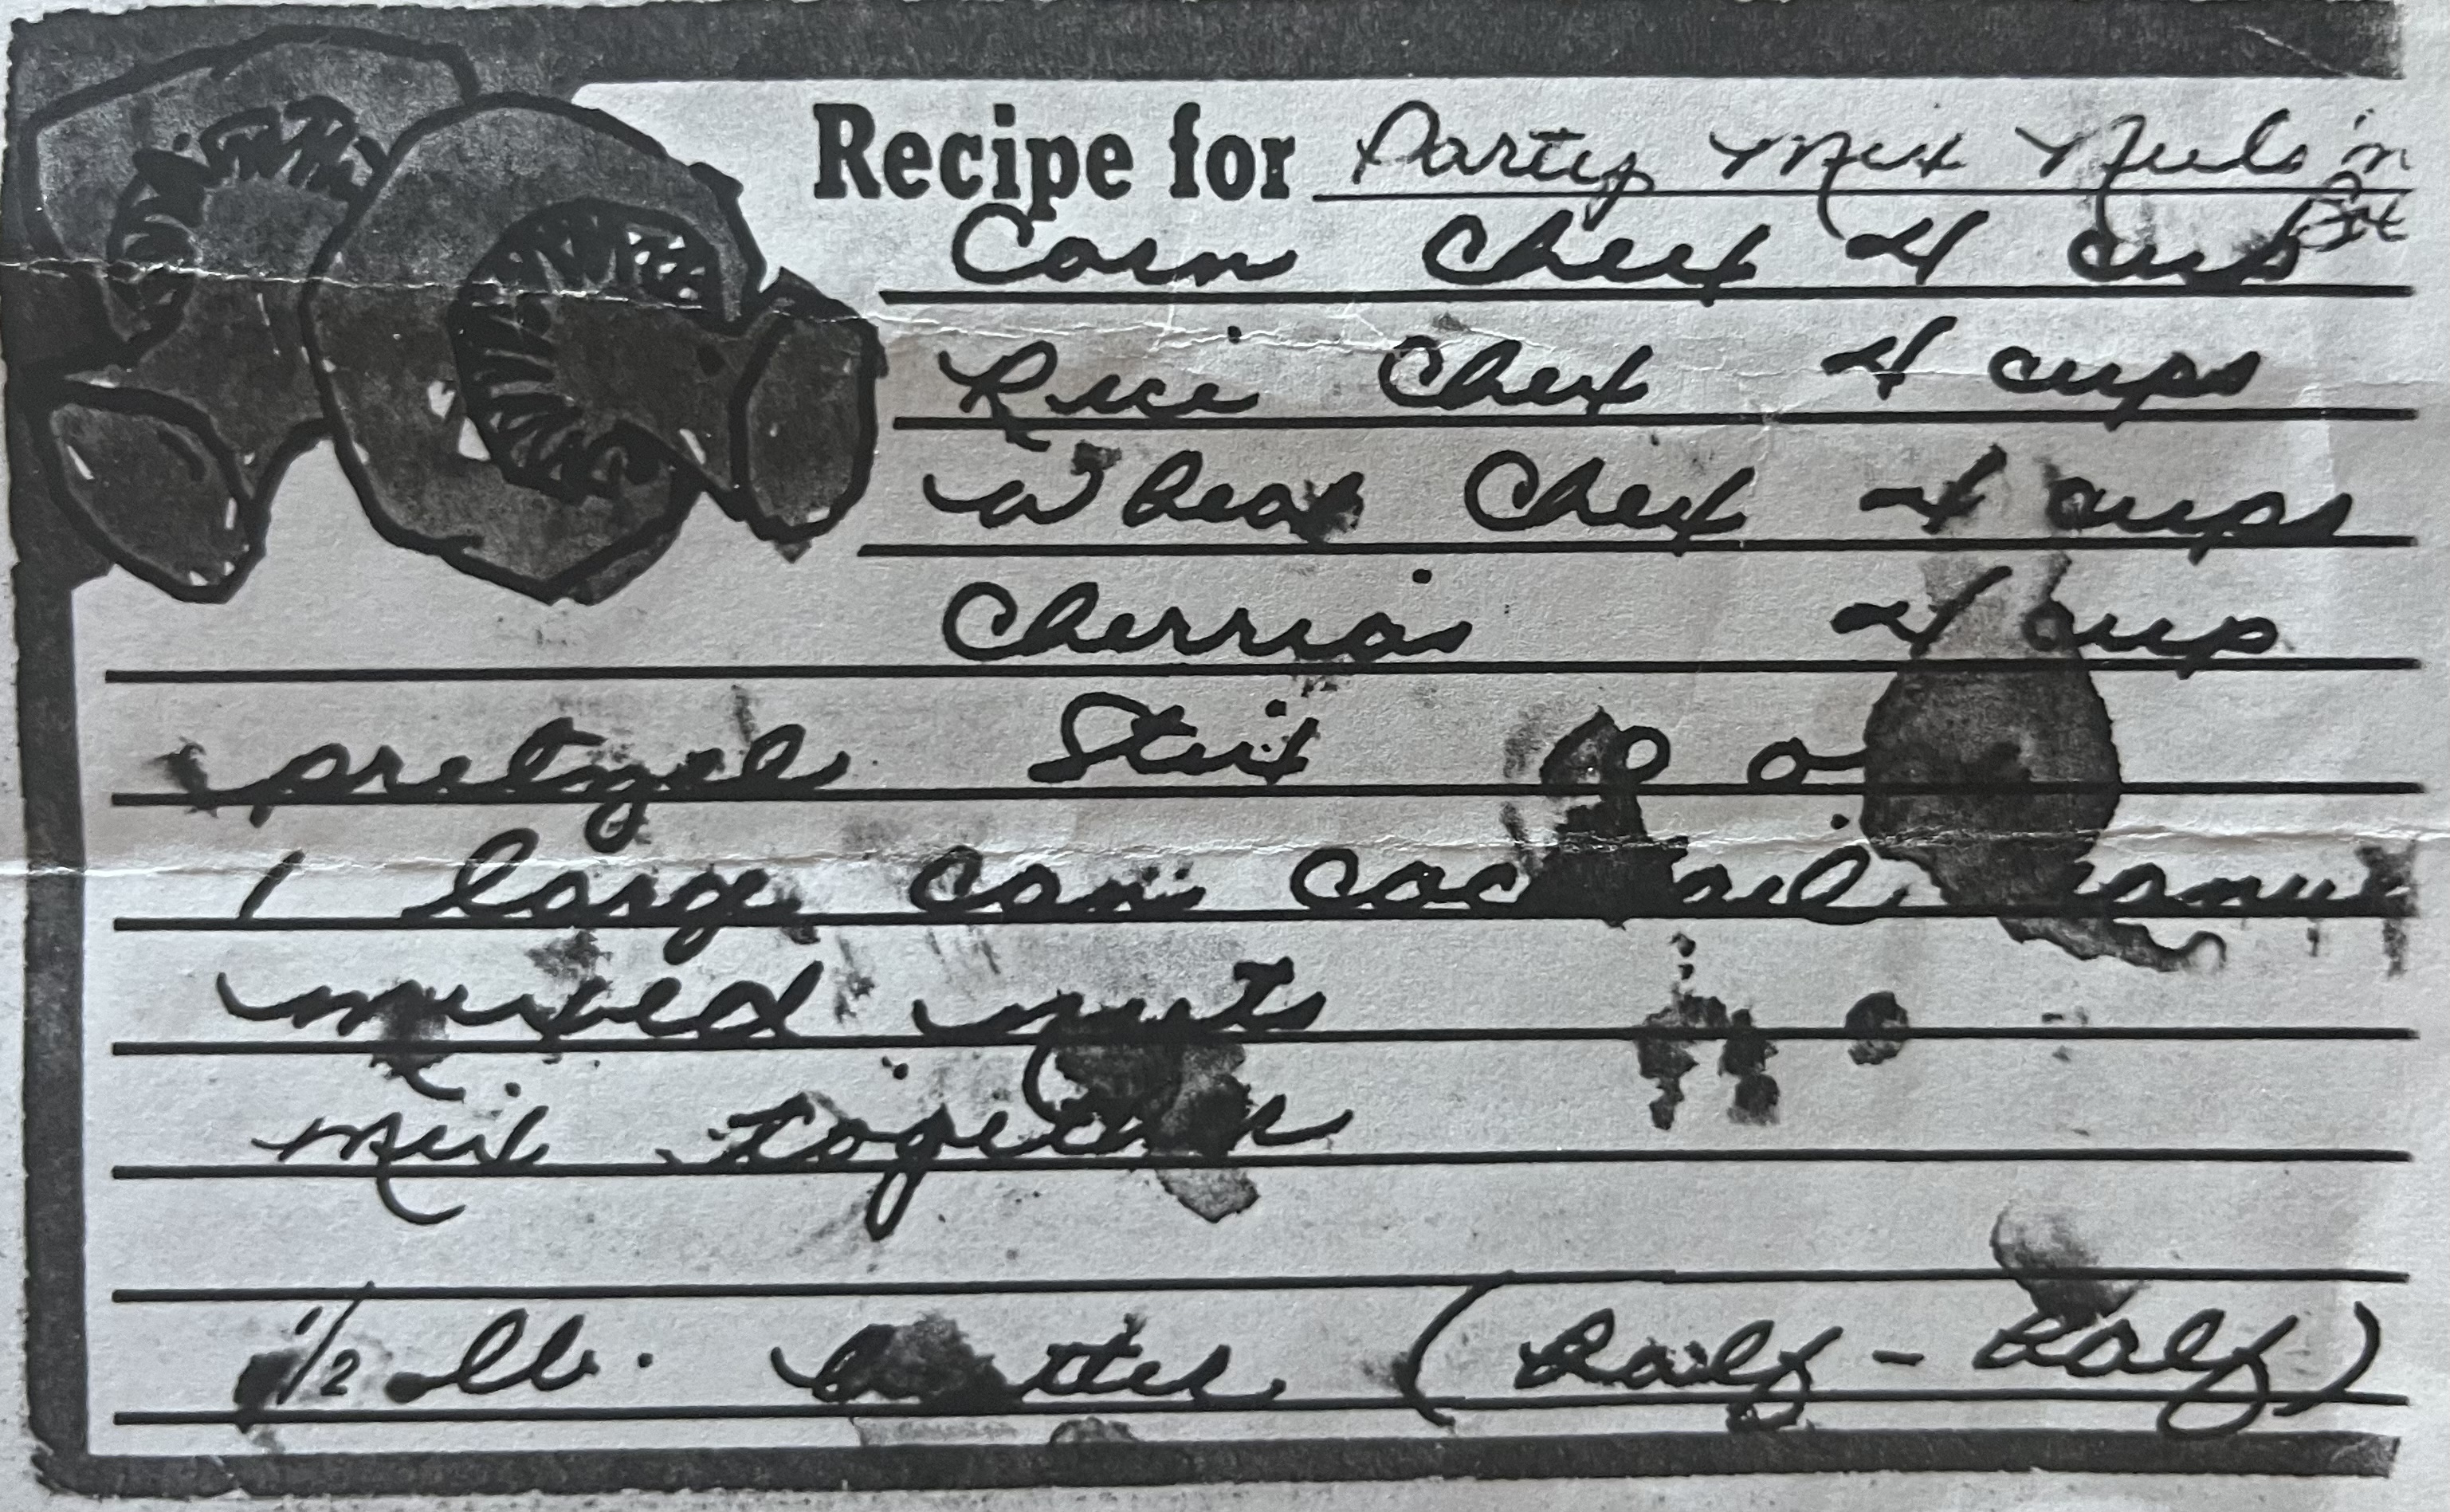 Recipe for Party Mix
Corn Chex 4 cup
Rice Chex 4 cups
Wheat Chex 4 cups
Cherrios 4 cup
pretzel Stix
1 large can cocktail
mixed nuts
mix together
1/2 lb. butter (half - half)